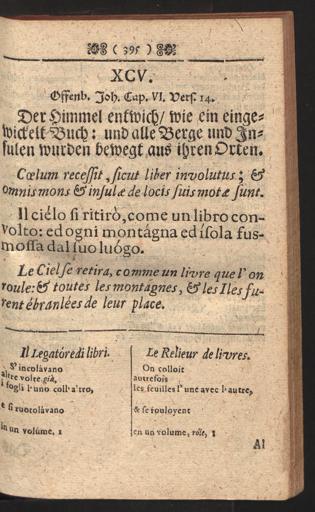 ( 395 )
XCV.
Offenb. Joh. Cap. VI. Vers. 14.
Der Himmel entwich/ wie ein einge-
wickelt Buch: und alle Berge und In-
sulen wurden bewegt aus ihren Orten.
Cœlum recessit, sicut liber involutus; &
omnis mons & insulæ de locis suis motæ sunt.
Il ciélo si ritirò, come un libro con-
volto: ed ogni montágna ed ísola fus-
mossa dal suo luógo.
Le Ciel se retira, comme un livre que l'on
roule: & toutes les montagnes, & les Iles fu-
rent ébranlées de leur place.
Il Legatóre di libri.
S' incolávano
altre volte già,
i fogli l'uno coll' altro,
e si ruotolávano
in un volúme. 1
Le Relieur de livres.
On colloit
autrefois
les feuilles l'une avec l'autre,
& se rouloyent
en un volume, rôle, 1
Al